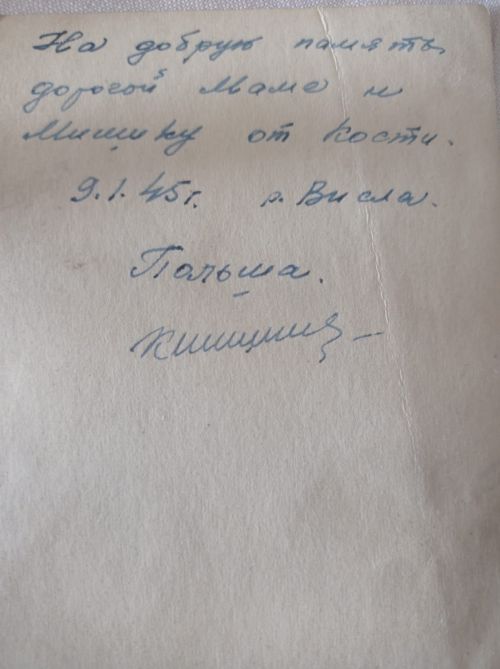 На добрую память
дорогой Маме и
Мишику от Кости.
9.1.45г. р. Висла.
Польша.